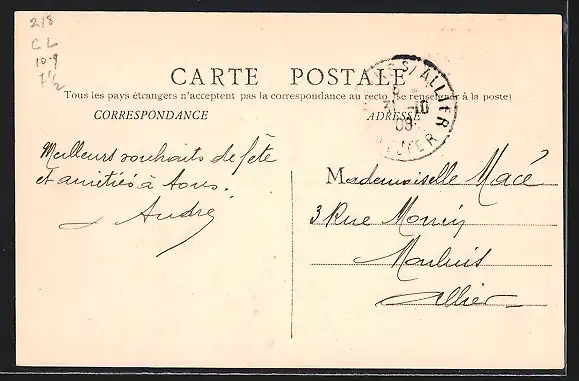 2/8
C L
10-9
7 1/2
CARTE POSTALE
Tous les pays étrangers n'acceptent pas la correspondance au recto (se renseigner à la poste)
CORRESPONDANCE
ADRESSE
S/ALLIER
31 -10
08
ALLIER
Meilleurs souhaits de fête
et amitiés à tous.
André
Mademoiselle Macé
3 Rue
Moulins
Allier